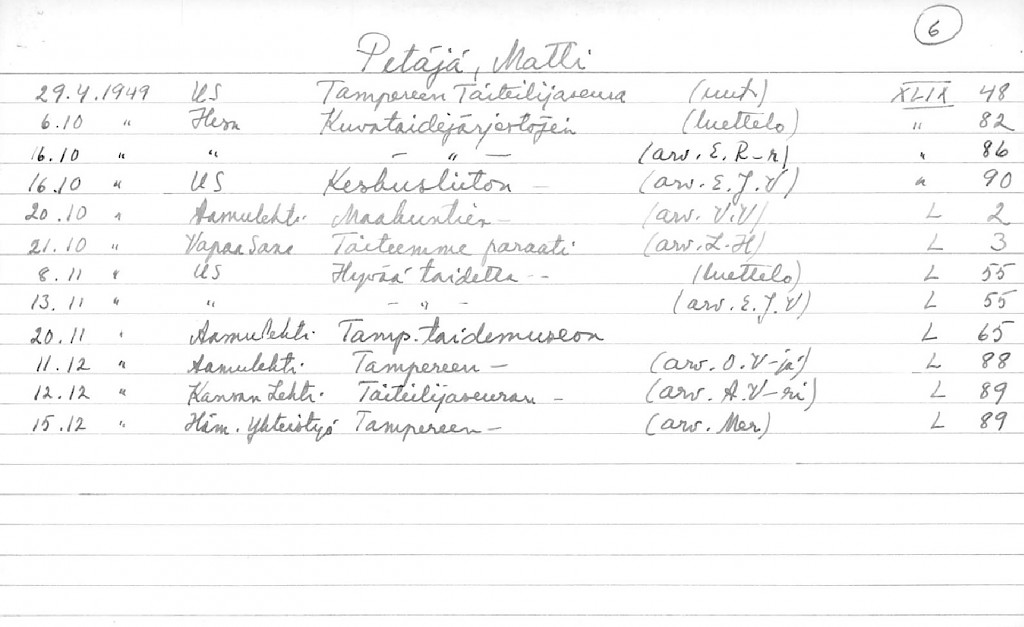 6
Petäjä, Matti
29.4.1949 US Tampereen Taiteilijaseura (uut.) XLIX 48
6.10 " Hesa Kuvataidejärjestöjen (luettelo) " 82
16.10 " " — " — (arv. E. R-r) " 86
16.10 " US Keskusliiton — (arv. E.J.V) " 90
20.10 " Aamulehti Maakuntien — (arv. V.V) L 2
21.10 " Vapaa Sana Taiteemme paraati (arv. L-H) L 3
8.11 " US Hyvää taidetta -- (luettelo) L 55
13.11 " " — " — (arv. E.J.V) L 55
20.11 " Aamulehti Tamp. taidemuseon L 65
11.12 " Aamulehti Tampereen — (arv. O.V-jä) L 88
12.12 " Kansan Lehti Taiteilijaseuran — (arv. A.V-ri) L 89
15.12 " Häm. Yhteistyö Tampereen — (arv. Mer) L 89